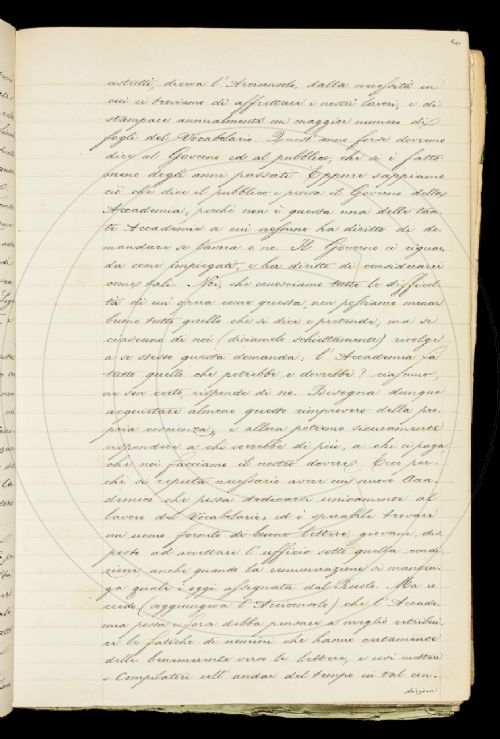 costretti, diceva l'Arciconsolo, dalla necessità in
cui ci troviamo di affrettare i nostri lavori, e di
stampare annualmente un maggior numero di
fogli del Vocabolario. Quest'anno forse dovremo
dire al Governo ed al pubblico, che si è fatto
meno degli anni passati. Eppure sappiamo
ciò che dice il pubblico e pensa il Governo della
Accademia, perché non è questa una delle tan-
te Accademie a cui nessuno ha diritto di do-
mandare se lavora o no. Il Governo ci riguar-
da come impiegati, e ha diritto di considerarci
come tali. Noi, che conosciamo tutte le difficol-
tà di un'opera come questa, non possiamo menar
buono tutto quello che si dice e pretende, ma se
ciascuno di noi (diciamolo schiettamente) rivolge
a se stesso questa domanda: l'Accademia fa
tutto quello che potrebbe e dovrebbe? ciascuno,
ne son certo, risponde di no. Bisogna dunque
acquietare almeno questo rimprovero della pro-
pria coscienza, e allora potremo sicuramente
rispondere a chi vorrebbe di più, a chi ci paga,
che noi facciamo il nostro dovere. Ecco per-
ché si reputa necessario avere un nuovo Acca-
demico che possa dedicarsi unicamente al
lavoro del Vocabolario, ed è sperabile trovare
un uomo fornito di buone lettere, giovane, dis-
posto ad accettare l'ufficio sotto quella condi-
zione, anche quando la remunerazione si manten-
ga quale è oggi assegnata dal Ruolo. Ma io
credo (soggiungeva l'Arciconsolo) che l'Accade-
mia possa e forse debba pensare a meglio retribui-
re le fatiche di uomini che hanno certamente
delle benemerenze verso le lettere, e così mettere
i Compilatori coll'andar del tempo in tal con-
dizione